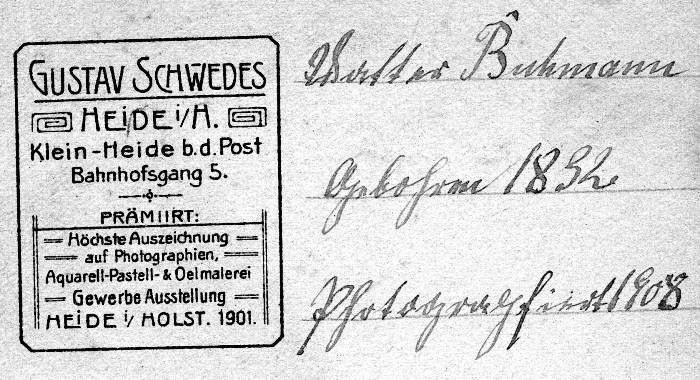 GUSTAV SCHWEDES
HEIDE i/H.
Klein-Heide b.d. Post
Bahnhofsgang 5.
PRÄMIIRT:
Höchste Auszeichnung
auf Photographien,
Aquarell-Pastell- & Oelmalerei
Gewerbe Ausstellung
HEIDE i/ HOLST. 1901.
Walter
Gebohren 1892
Photograpfiert 1908